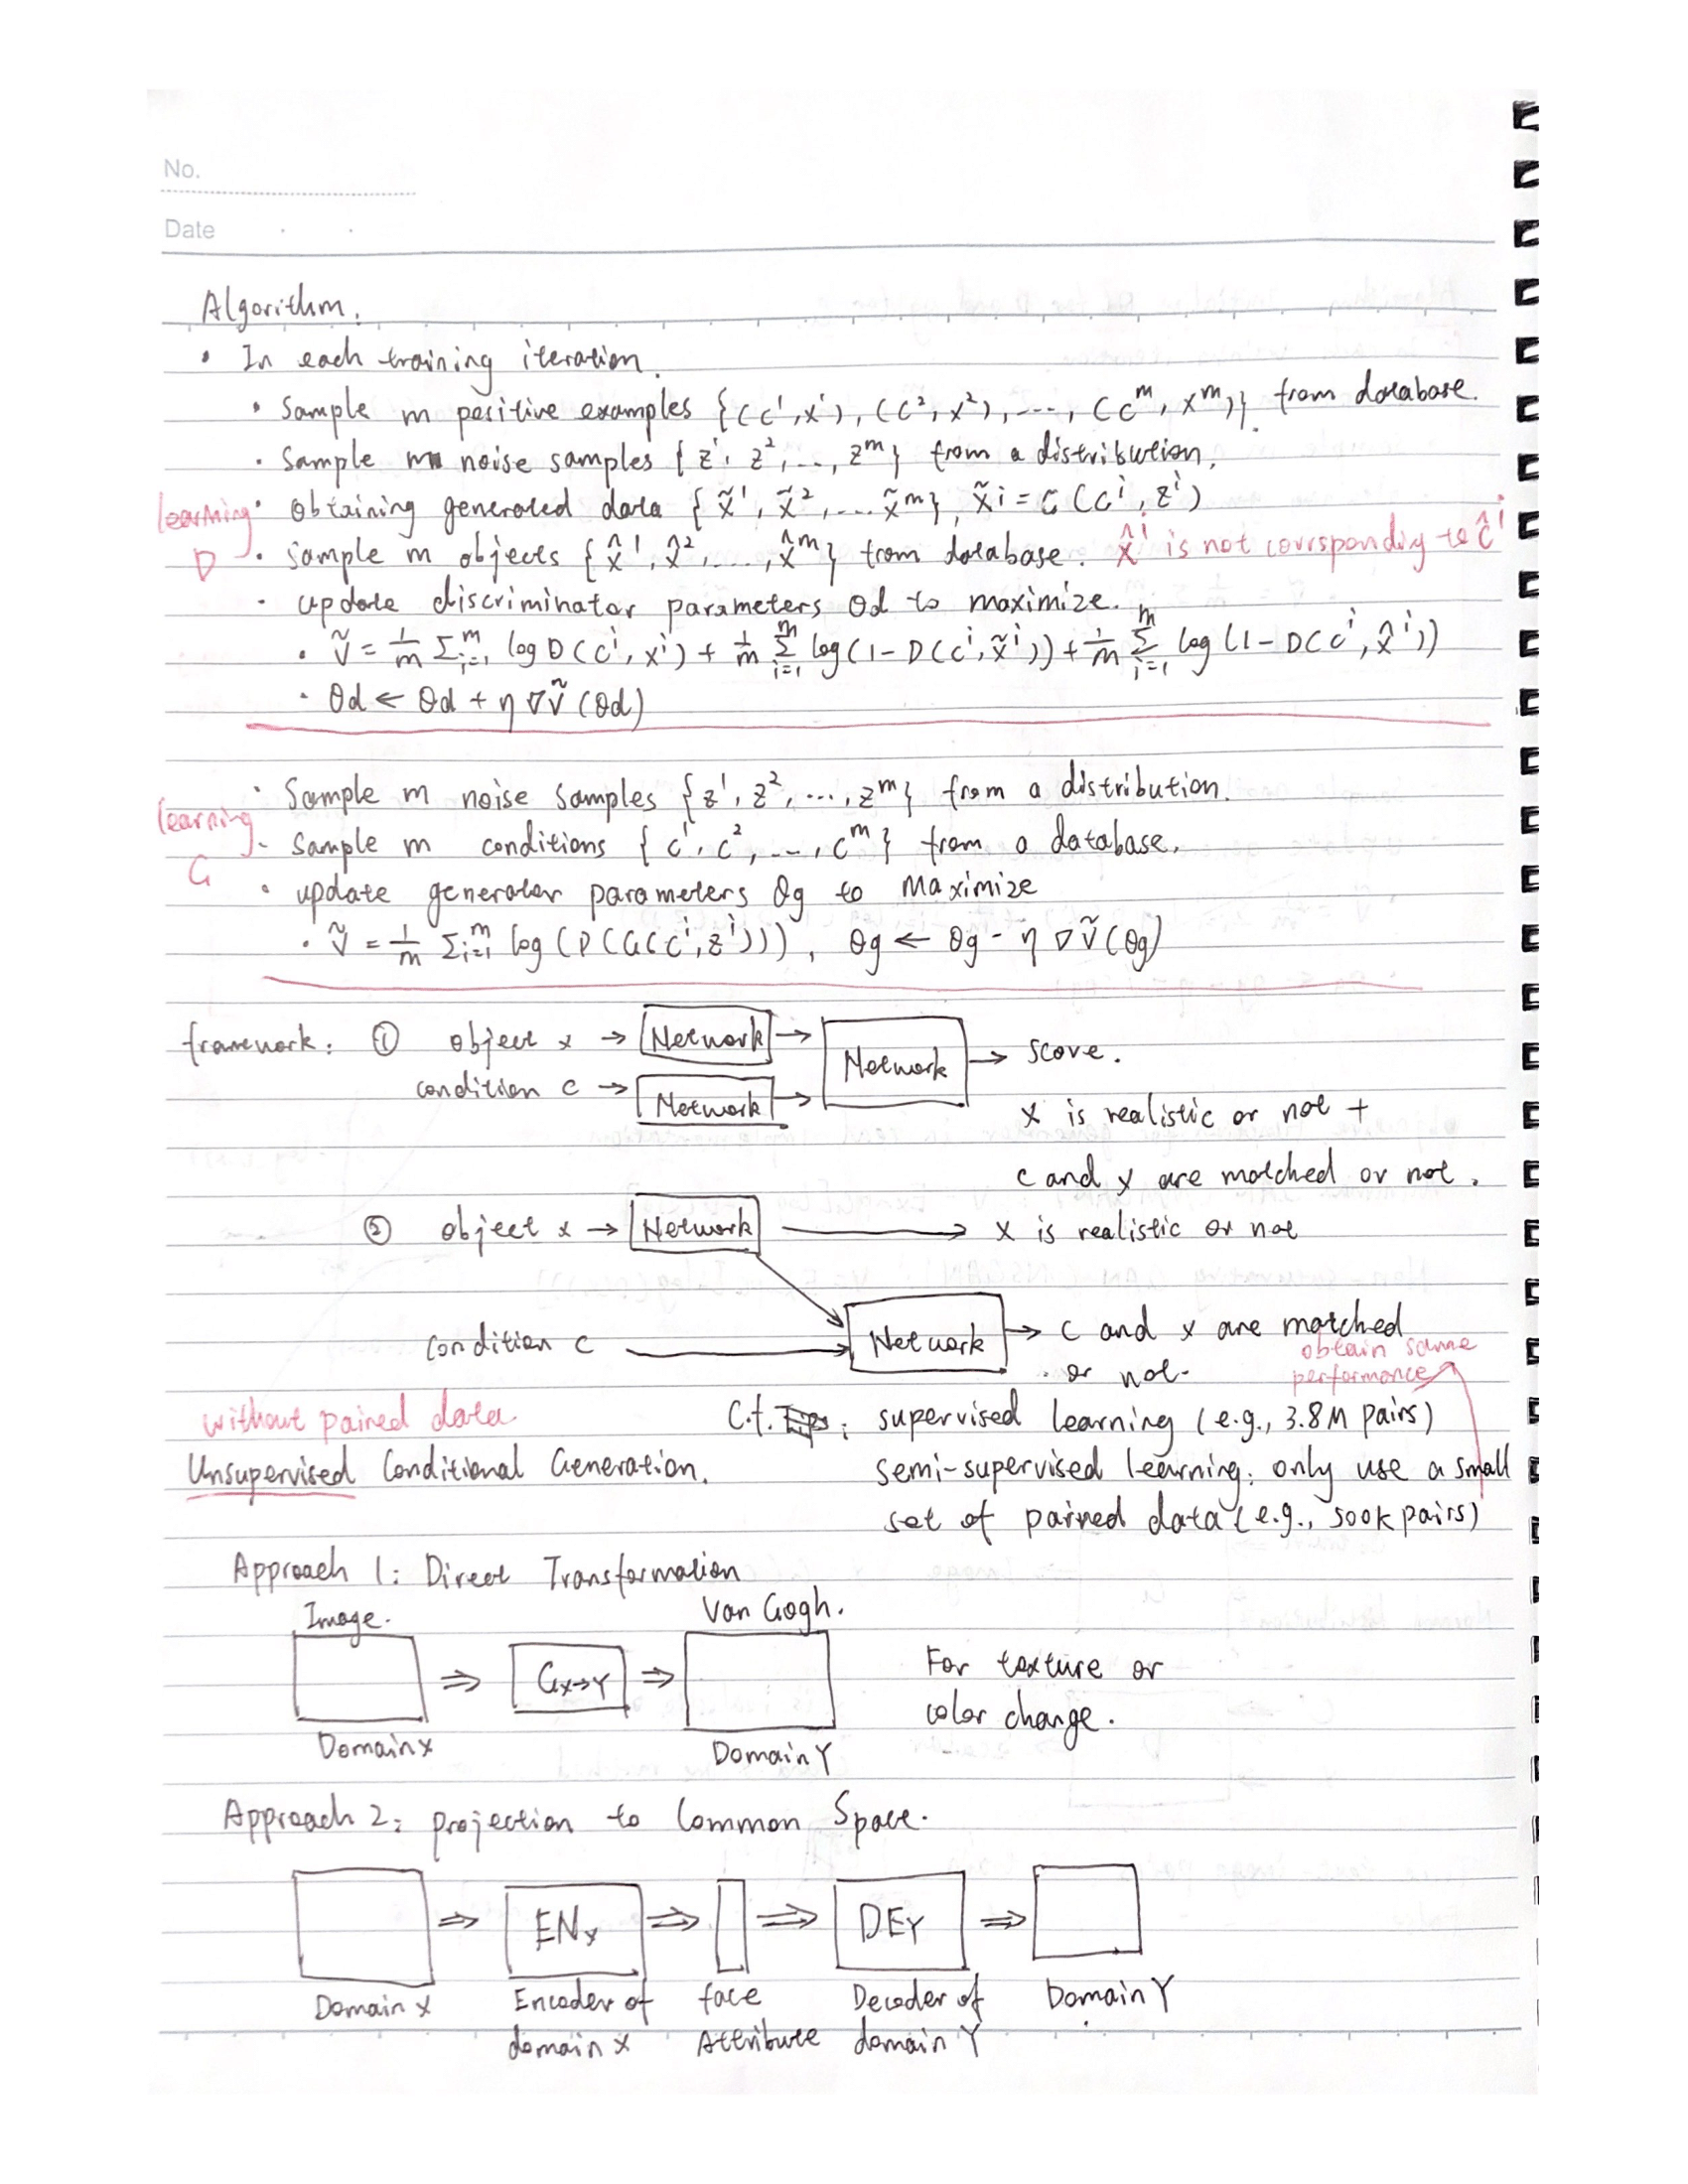 No.
Date
Algorithm.
• In each training iteration.
• Sample m positive examples {(c¹, x¹), (c², x²), ..., (cᵐ, xᵐ)} from database.
• Sample m noise samples {z¹, z², ..., zᵐ} from a distribution.
learning D
• Obtaining generated data {x̃¹, x̃², ... x̃ᵐ}, x̃i = G(cⁱ, zⁱ)
• Sample m objects {x̂¹, x̂², ..., x̂ᵐ} from database. x̂ⁱ is not corrspondig to ĉⁱ
• update discriminator parameters θd to maximize.
• Ṽ = 1/m Σᵢ₌₁ᵐ log D(cⁱ, xⁱ) + 1/m Σᵢ₌₁ᵐ log(1 - D(cⁱ, x̃ⁱ)) + 1/m Σᵢ₌₁ᵐ log(1 - D(cⁱ, x̂ⁱ))
• θd ← θd + η ∇Ṽ(θd)
• Sample m noise samples {z¹, z², ..., zᵐ} from a distribution.
learning G
• Sample m conditions {c¹, c², ..., cᵐ} from a database.
• update generator parameters θg to maximize
• Ṽ = 1/m Σᵢ₌₁ᵐ log(D(G(cⁱ, zⁱ))), θg ← θg - η ∇Ṽ(θg)
framework: ① object x → Network → Network → score.
condition c → Network →
x is realistic or not +
c and x are matched or not.
② object x → Network → x is realistic or not
condition c → Network → c and x are matched
or not.
obtain same
performance
without paired data.
C.f. : supervised learning (e.g., 3.8M pairs)
Unsupervised Conditional Generation.
semi-supervised learning: only use a small
set of paired data (e.g., 500k pairs)
Approach 1: Direct Transformation
Image. Van Gogh.
⇒ Gx→Y ⇒
For texture or
color change.
Domain x Domain Y
Approach 2: projection to Common Space.
⇒ ENx ⇒ ⇒ DEY ⇒
Domain x Encoder of face Decoder of Domain Y
domain x Attribute domain Y